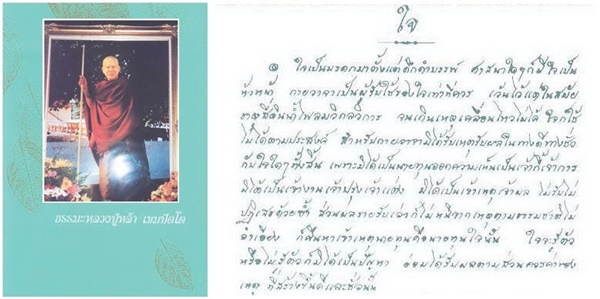 ธรรมะหลวงปู่หล้า เขมปัตโต
ใจ
๑ ใจเป็นมรดกมาตั้งแต่ดึกดำบรรพ์ ศาสนาใดๆก็มีใจเป็น
หัวหน้า กายวาจาเป็นผู้รับใช้ของใจเท่าที่ควร เว้นไว้แต่ในสมัย
ธาตุขันธ์ วิกลวิการ จนเกินเหตุเคลื่อนไหวไม่ได้ ใจก็ใช้
ไม่ได้ตามประสงค์ สำหรับกายวาจามิได้รับเหตุรับผลในทางดีทางชั่ว
กับใจใดๆทั้งสิ้น เพราะมิได้เป็นนายทุนออกความเห็นเป็นเจ้ากี้เจ้าการ
มิได้เป็นเจ้างานเจ้าปรุงเจ้าแต่ง มิได้เป็นเจ้าเหตุเจ้าผล ไม่รับไม่
ปฏิเสธด้วยซ้ำ ส่วนผลรายรับเล่าก็ไม่หนีจากเหตุตามธรรมชาติไม่
ลำเอียง ก็คืนหาเจ้าเหตุนายทุนคือนายทุนใจนั้น ใจจะรู้ตัว
หรือไม่รู้ตัวก็มิได้เป็นปัญหา ย่อมได้รับผลตามส่วนควรค่าของ
เหตุ ที่สร้างขึ้นดีและชั่วนั้น